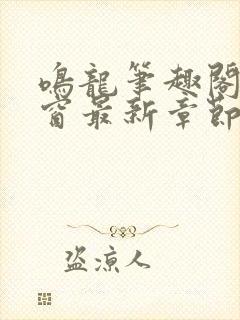 鳴龍筆趣閣
窗最新章節
盜涼人